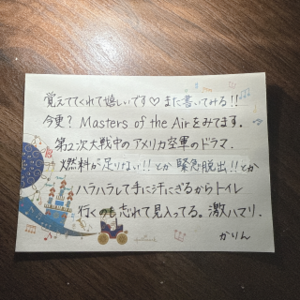 覚えててくれて嬉しいです♡ また書いてみる!!
今更? Masters of the Airをみてます.
第二次大戦中のアメリカ空軍のドラマ.
燃料が足りない!! とか 緊急脱出!! とか
ハラハラして手に汗にぎるからトイレ
行くのも忘れて見入ってる. 激ハマリ.
かりん